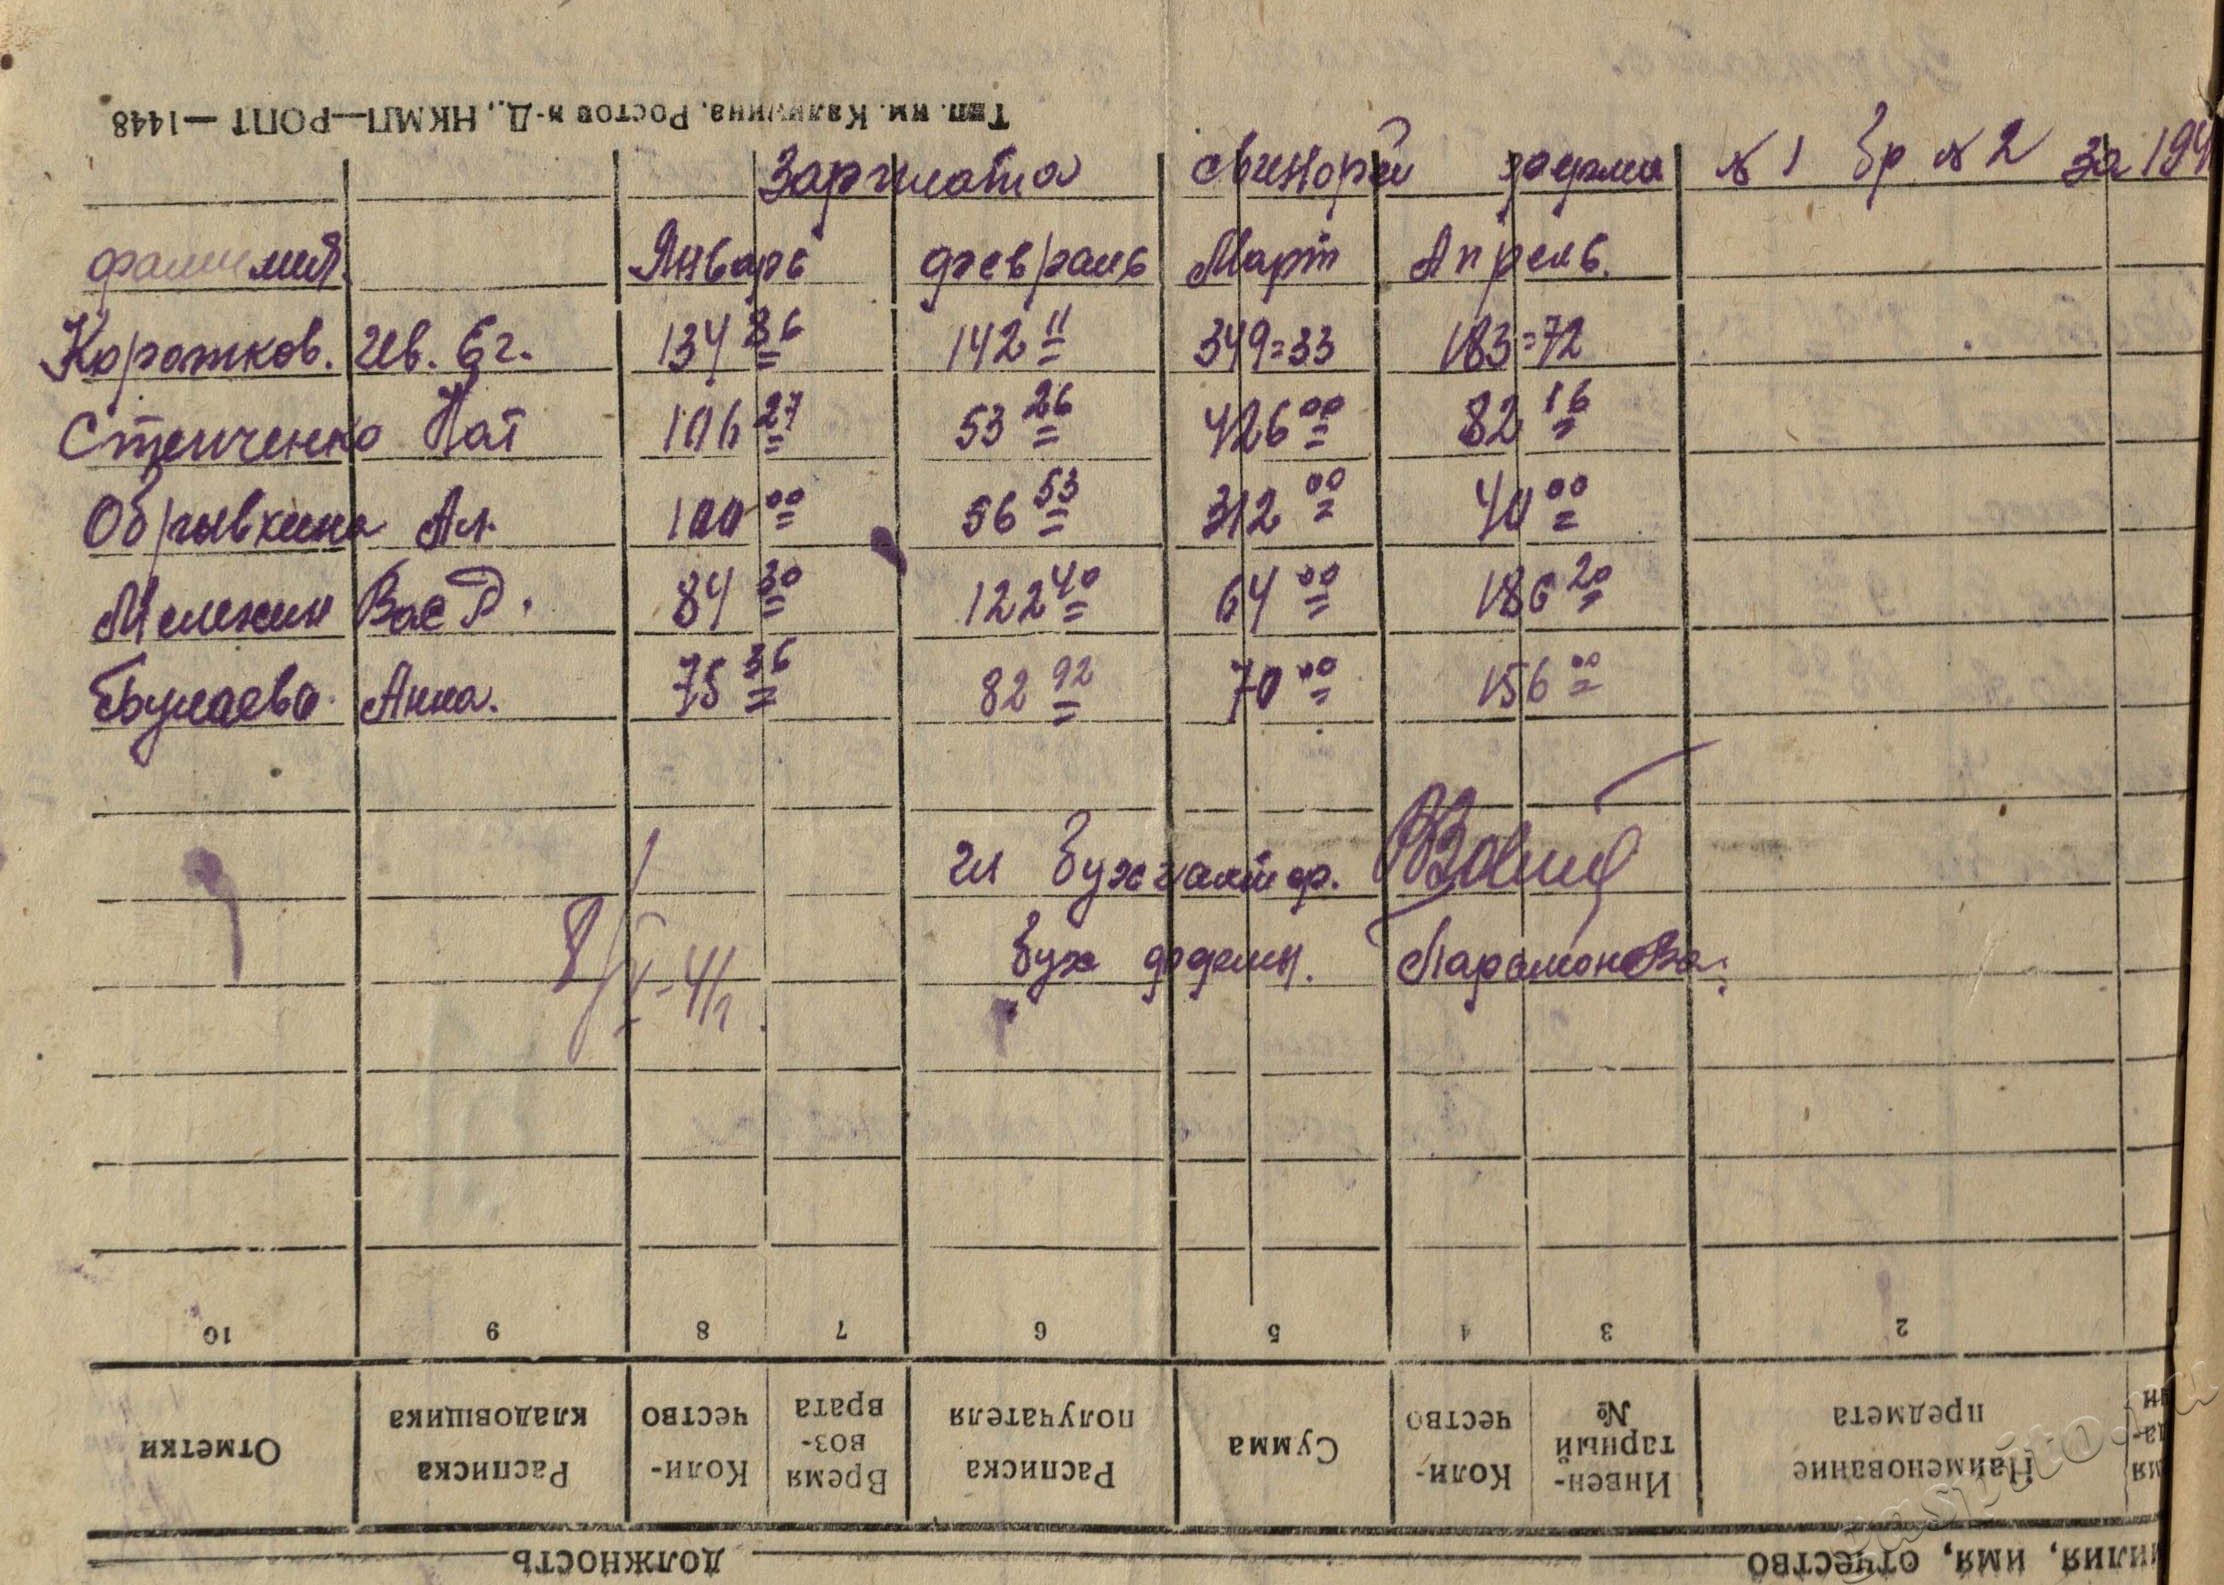 Тип. им. Калинина, Ростов н-Д., НКМП—РОПТ —1448
Зарплата свинофер № 1 бр № 2 за 194
фамилия. Январь февраль Март Апрель.
Коротков. Ив. Ег. 134 36 142 11 349=33 183=72
Степченко Нат 106 27 53 26 426 00 82 16
Обрывкина Ал. 100 00 56 53 312 00 40 00
Мележик Вас Д. 84 30 122 40 64 00 186 20
Бунаева Анна. 75 36 82 92 70 00 156 00
гл бухгалтер.
бух Парамонова.
10 9 8 7 6 5 4 3 2
Отметки Расписка кладовщика Коли- чество Время воз- врата Расписка получателя Сумма Коли- чество Инвен- тарный № Наименование предмета
должность милия, имя, отчество